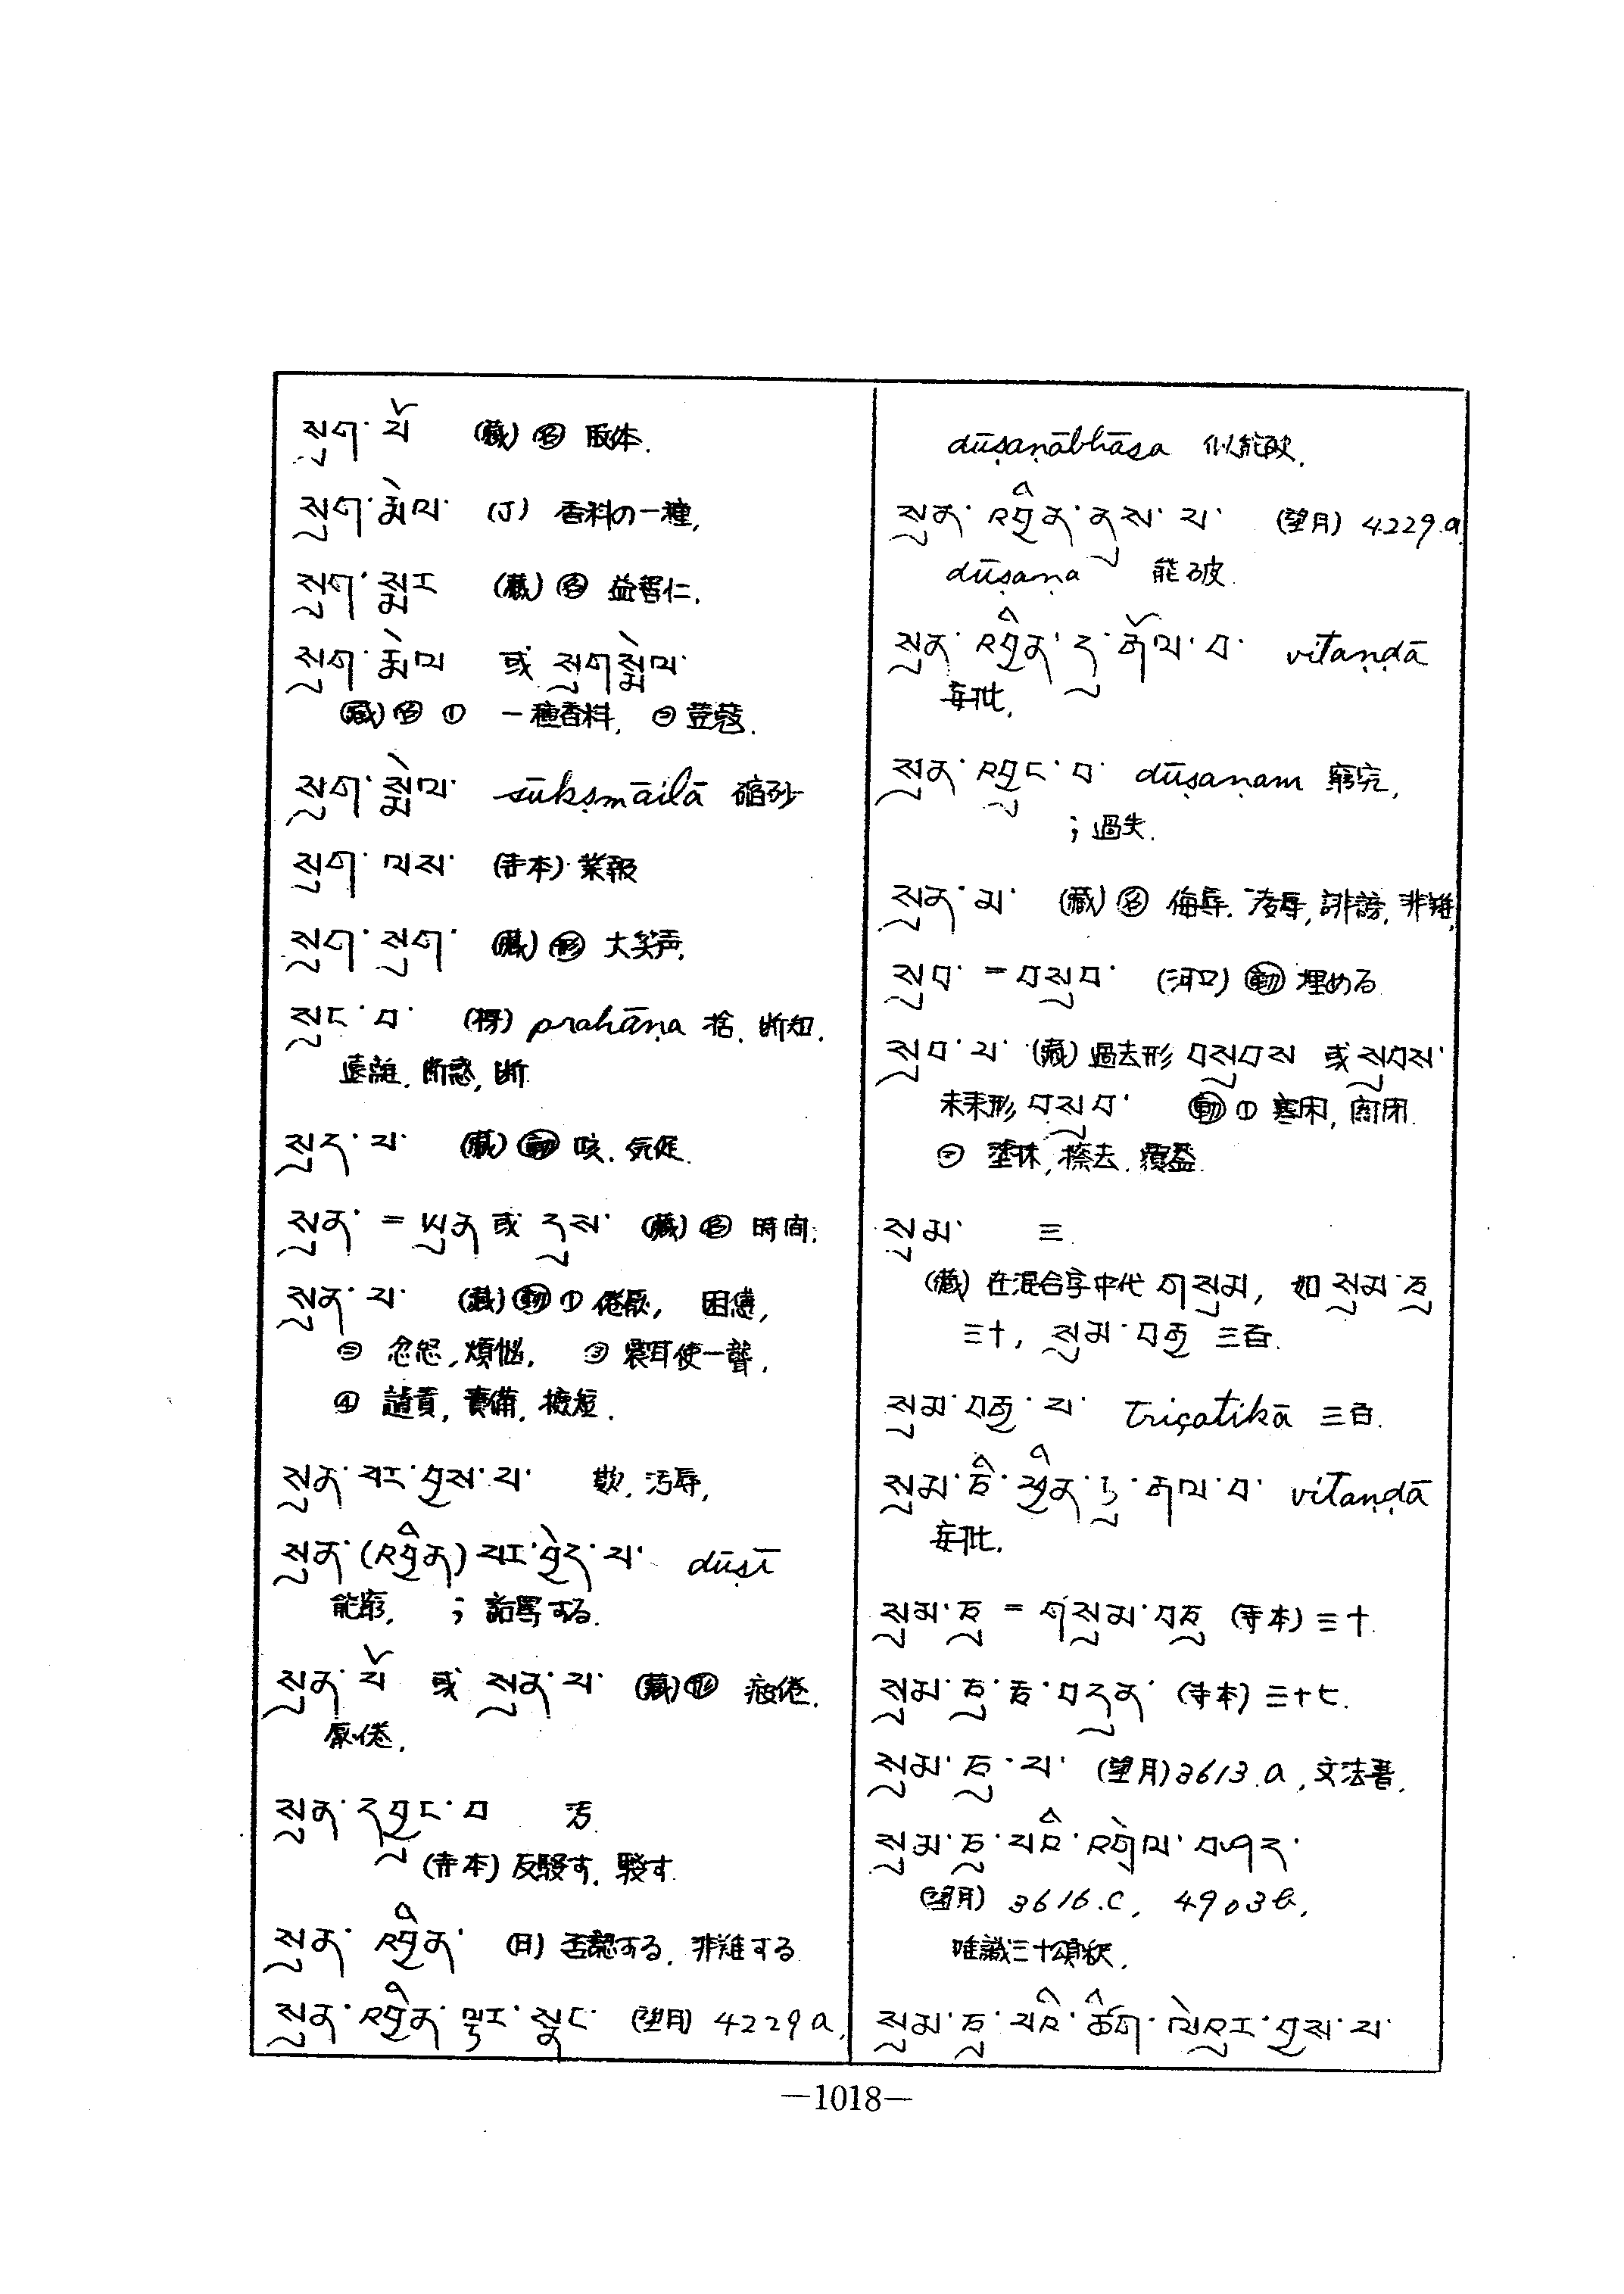 སུག་པོ (蔵) 名 版本.
སུག་མེལ་ (J) 香料の一種,
སུག་སྨར (蔵) 名 益智仁.
སུག་མེལ 或 སུག་སྨེལ་
(蔵) 名 ① 一種香料, ② 荳蔻.
སུག་སྨེལ་ sūkṣmāilā 縮砂
སུག་ལས་ (寺本) 業報
སུག་སུག་ (蔵) 形 大笑声.
སུང་བ་ (榊) prahāṇa 捨, 断知.
遠離, 断惑, 断
སུད་པ་ (蔵) 動 咳, 気促.
སུན་ = ཡུན 或 དུས་ (蔵) 名 時間.
སུན་པ་ (蔵) 動 ① 倦厭, 困憊,
② 忿怒, 煩惱, ③ 震耳使一聾,
④ 譴責, 責備, 掀短.
སུན་པར་བྱས་པ་ 欺, 汚辱,
སུན་(འབྱིན)པར་བྱེད་པ་ dūṣī
能窮, ; 詬罵する.
སུན་པོ 或 སུན་པ་ (蔵) 形 疲倦.
厭倦.
སུན་དབྱུང་བ 汚
(寺本) 反駁す, 駁す.
སུན་འབྱིན་ (目) 否認する, 非難する
སུན་འབྱིན་ལྟར་སྣང་ (望月) 4229a,
dūṣaṇābhāsa 似能破.
སུན་འབྱིན་ནུས་པ་ (望月) 4229.a
dūṣaṇa 能破.
སུན་འབྱིན་དུ་རྒོལ་བ་ vitaṇḍā
毒批,
སུན་འབྱུང་བ་ dūṣaṇam 窮究,
; 過失.
སུན་མ་ (蔵) 名 侮辱, 凌辱, 誹謗, 非難,
སུབ་ = བསུབ་ (河口) 動 埋める
སུབ་པ་ (蔵) 過去形 བསུབས 或 སུབས་
未来形 བསུབ་ 動 ① 塞閑, 関閉.
② 塗抹, 擦去, 覆蓋.
སུམ་ 三
(蔵) 在混合字中代 གསུམ, 如 སུམ་ཅུ
三十, སུམ་བརྒྱ 三百.
སུམ་བརྒྱ་པ་ triçatikā 三百.
vitaṇḍā
毒批.
སུམ་ཅུ = གསུམ་བཅུ (寺本) 三十.
སུམ་ཅུ་རྩ་བདུན་ (寺本) 三十七.
སུམ་ཅུ་པ་ (望月) 3613.a, 文法書.
སུམ་ཅུ་པའི་འགྲེལ་བཤད་
(望月) 3616.c, 4903b,
唯識三十頌釈.
སུམ་ཅུ་པའི་ཚིག་ལེའུར་བྱས་པ་
—1018—